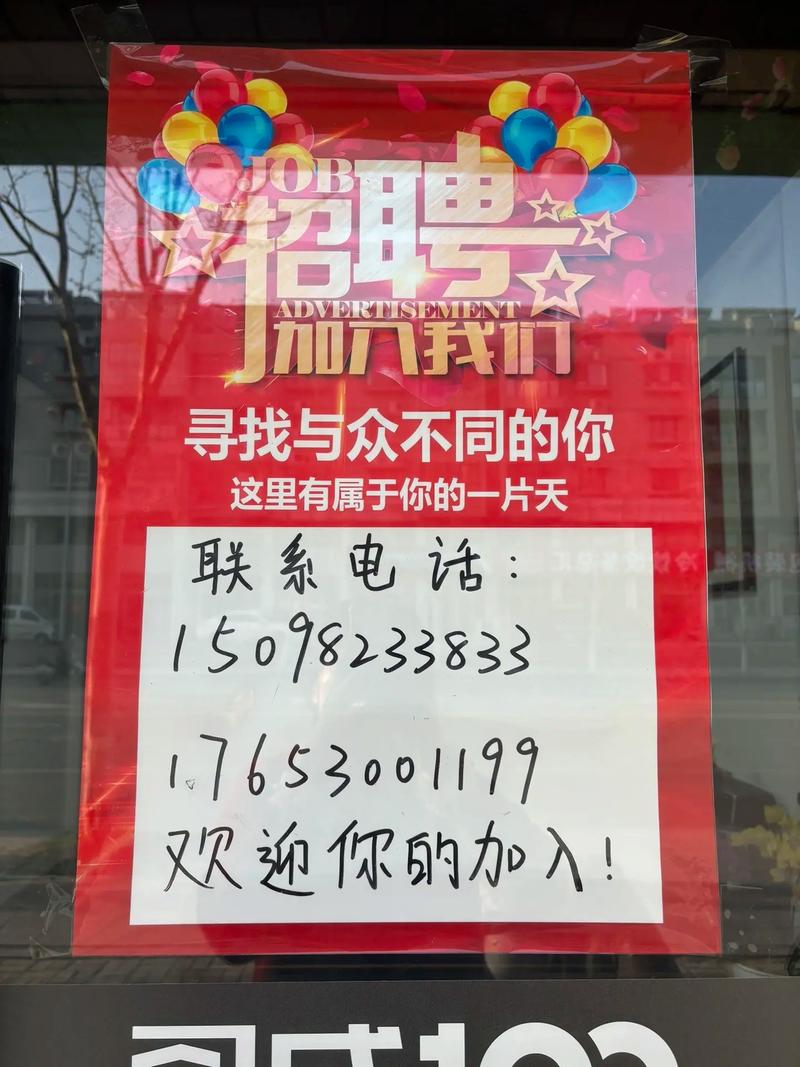 JOB
招聘
ADVERTISEMENT
加入我们
寻找与众不同的你
这里有属于你的一片天
联系电话:
15098233833
17653001199
欢迎你的加入!